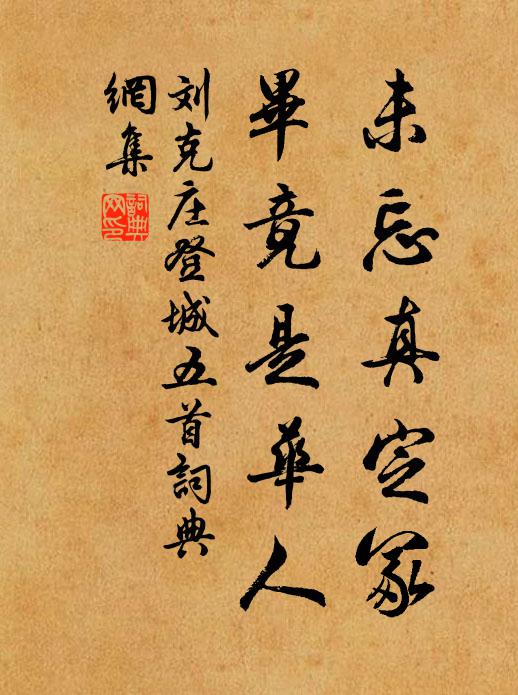 未忘真定冢
畢竟是華人
刘克庄登城五首詞典
網集
詞典
网印